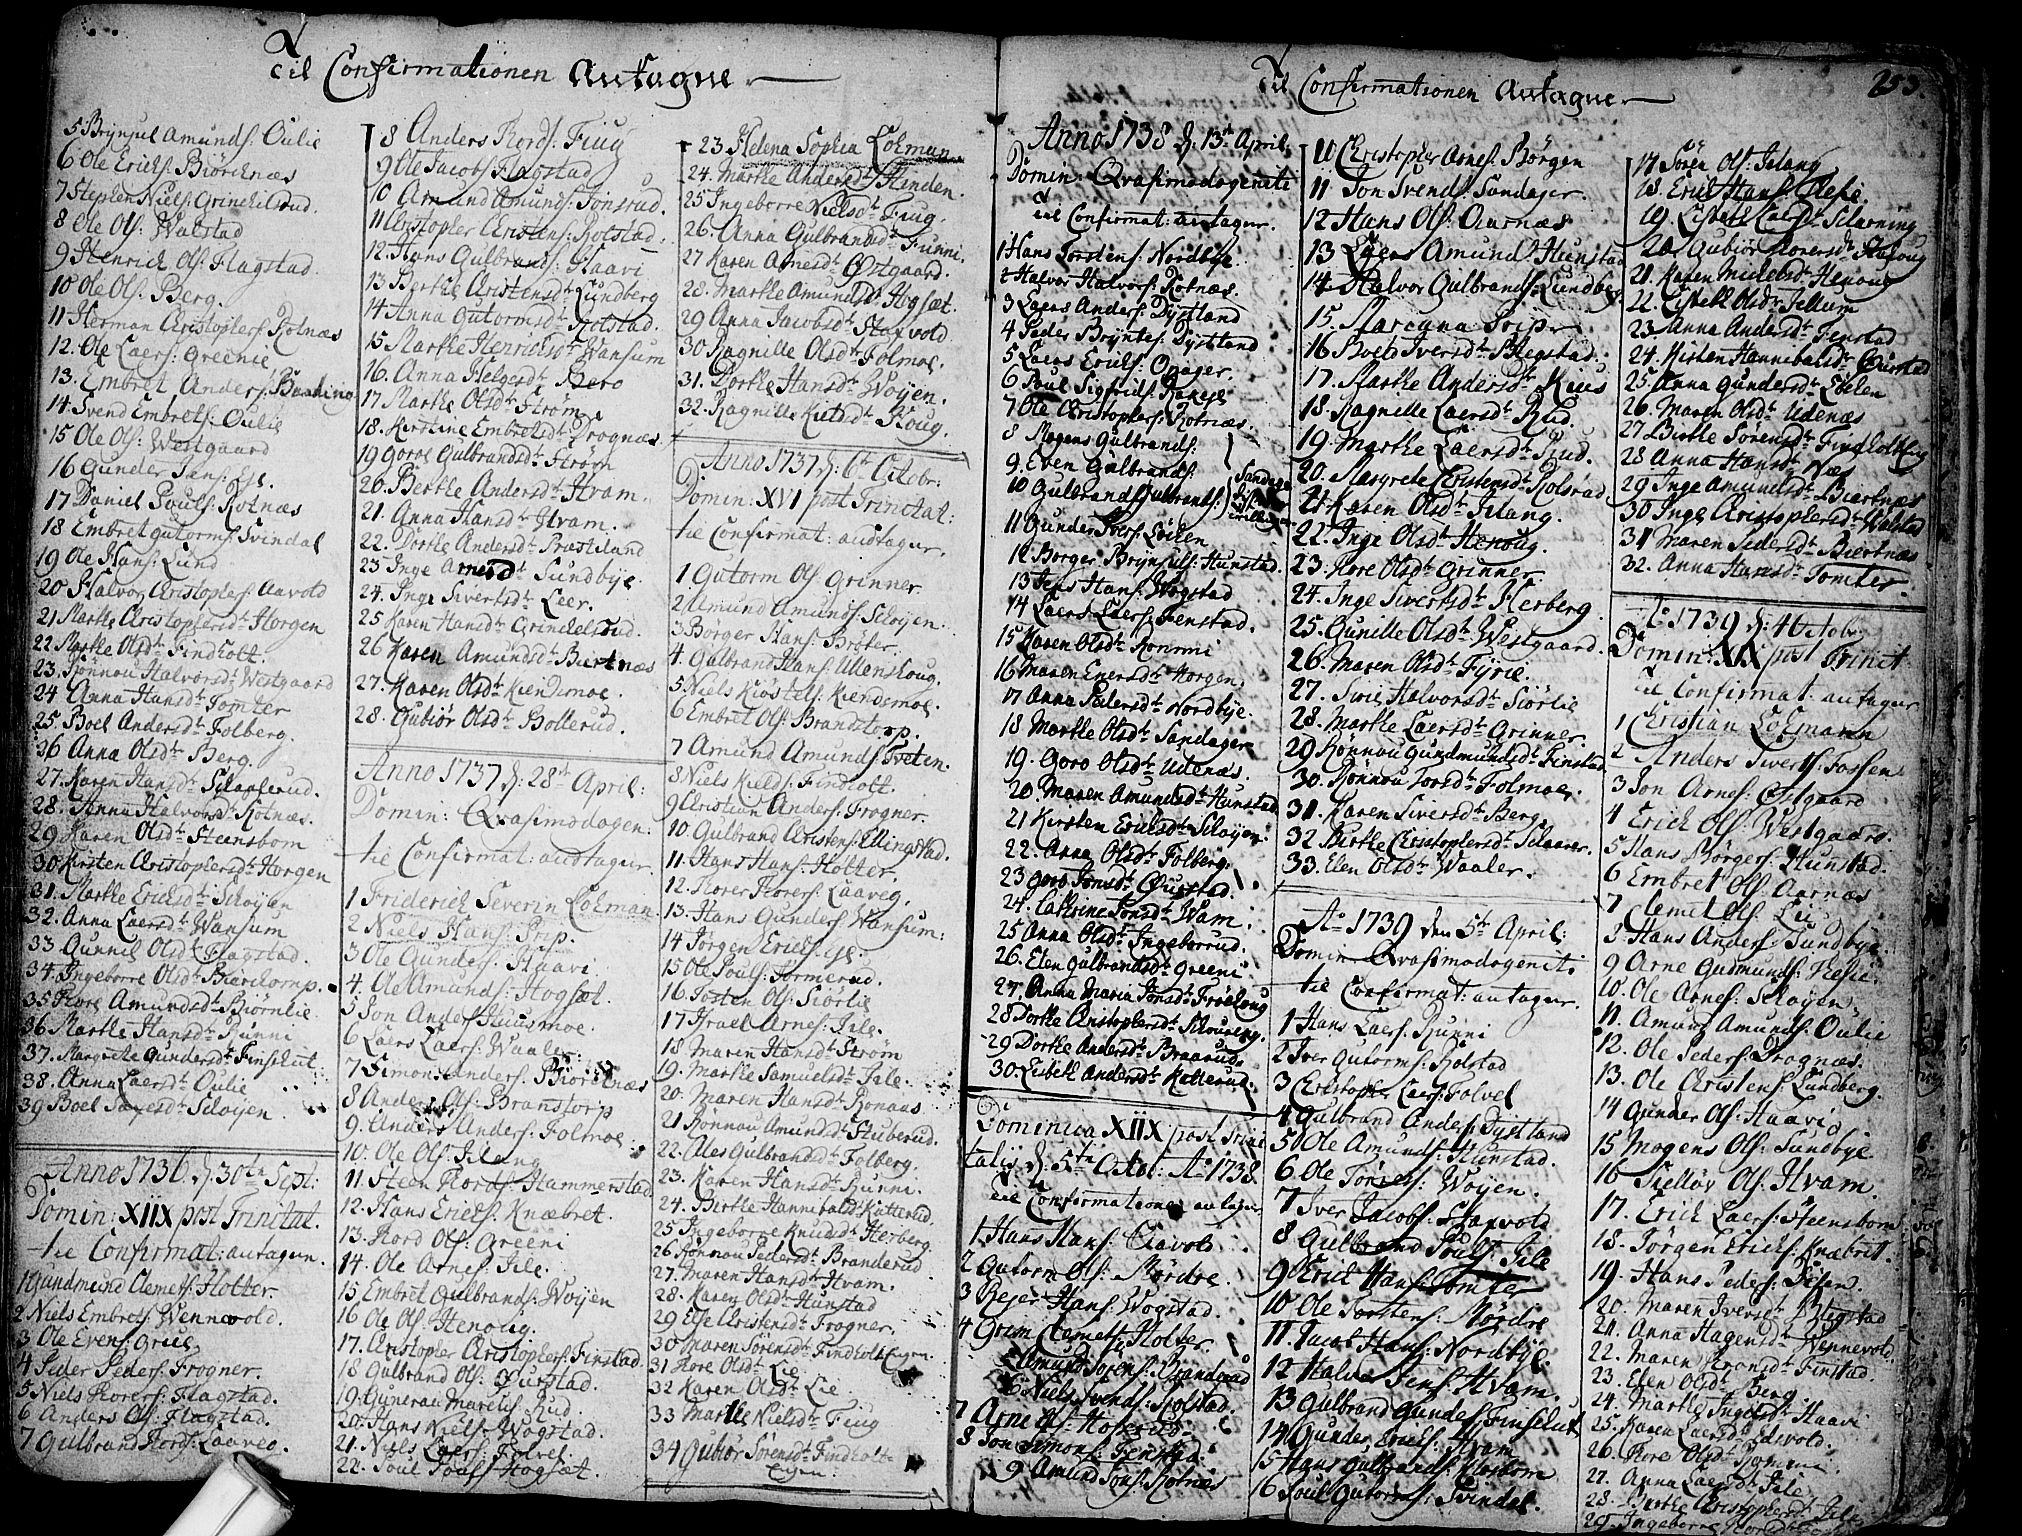 Til Confirmationen Antagne
5 Brynjul Amunds: Oulie
6 Ole Ericks: Biörcknæs
7 Stephen Niels: Grinchelsrud.
8 Ole Ols: Walstad
9 Henrich Ols: Flagstad.
10 Ole Ols: Berg.
11 Herman Christophers: Kolnæs
12. Ole Laers: Greenie
13. Embret Anders:
14 Svend Embrets: Oulie
15 Ole Ols: Westgaard
16 Gunder Jens: Ese.
17 Daniel Pouls: Kolnæs
18 Embret Gutorms: Svindal
19 Ole Hans: Lund
20 Halvor Christophers: Aavold
21 Marthe Christophersdtr Horgen
22 Marthe Olsdtr Findholt.
23. Rönnou Halvorsdtr Westgaard
24 Anna Hansdtr Tomter
25. Boel Andersdtr Folberg.
26 Anna Olsdtr Berg.
27. Karen Hansdtr Sclapferud.
28. Anna Halvorsdtr Kolnæs.
29 Karen Olsdtr Steensbom
30 Kirsten Christophersdtr Horgen
31. Marthe Ericksdtr Scloyen
32. Anna Laersdtr Wansum
33. Gunnil Olsdtr Flagstad.
34. Ingeborre Olsdtr
35 Kore Amundsdtr Biörnlie.
36 Marthe Hansdtr Runni
37. Margrethe Gundersdtr Finshut.
38. Anna Laersdtr Oulie
39 Boel Sdtr Scloyen
Anno 1736 d: 30te Sept:
Domin: XIIX post Trinitat.
til Confirmat: antagen.
1 Gudmund Clemets: Holter.
2 Niels Embrets: Wennevold.
3 Ole Evens: Griis
4 Peder Peders: Frogner.
5 Niels Korers: Flagstad.
6 Anders Ols: Flagstad.
7 Gulbrand Kords: Laaveg.
8 Anders Kords: Fiug
9 Ole Jacobs: Flagstad
10 Amund Amunds: Jonsrud.
11 Christopher Christens: Rolstad.
12. Hans Gulbrands: Haavi
13 Berthe Christensdtr Lundberg
14 Anna Gutormsdtr Rolstad.
15 Marthe Henrichsdtr Wansum
16. Anna Helgesdtr Bero
17 Marthe Olsdtr Ström
18. Kirstine Embretsdtr Drognæs.
19 Goro Gulbrandsdtr Ström
20. Berthe Andersdtr Hvam.
21. Anna Hansdtr Hvam.
22. Dorthe Andersdtr Præsteland
23 Inge Arnesdtr Sundbye
24. Inge Sivertsdtr Leer.
25 Karen Hansdtr Grindelsrud.
26 Karen Amundsdtr Biertnæs
27. Karen Olsdtr Kiendemoe.
28. Gubiör Olsdtr Bollerud.
Anno 1737 d: 28de April:
Domin: Qvasimodogen:
til Confirmat: andtagen.
1 Friderich Severin Lohman
2 Niels Hans: Prip.
3 Ole Gunders: Haavi
4. Ole Amunds: Hogsæt.
5 Jon Anders: Huusmoe.
6 Laers Laers: Waaler.
7 Simon Anders: Biörcknæs
8 Anders Ols: Branstorp
9. Anders Anders: Folmoe.
10. Ole Ols: Jslang
11. Steen Kords: Hammerstad
12. Hans Ericks: Knæbret.
13. Kord Ols: Greeni
14. Ole Arnes: Jsle.
15 Embret Gulbrands: Woyen
16 Ole Ols: Henoug.
17. Christopher Christophers: Finstad
18 Gulbrand Ols: Qurstad.
19. Rud.
20. Hans Niels: Wogstad.
21. Niels Laers: Folvel
22. Poul Pouls: Hogsæt.
23. Helena Sophia Lohman
24. Marthe Andersdtr Hinden.
25 Ingeborre Nielsdtr Fiug.
26. Anna Gulbrandsdtr Funni.
27 Karen Arnesdtr Østgaard.
28. Marthe Amundsdtr Hogsæt.
29 Anna Jacobsdtr Haxvold
30 Ragnille Olsdtr Folmoe.
31. Dorthe Hansdtr Woyen.
32. Ragnille Kieldsdtr Koug.
Anno 1737 d: 6te Octobr:
Domin: XVI post Trinitat:
til Confirmat: andtagen.
1 Gutorm Ols: Grinner
2 Amund Amunds: Scloyen.
3 Börger Hans: Bröter.
4. Gulbrand Hans: Ullenshoug.
5. Niels Kiöstels: Kiendemoe.
6 Embret Ols: Branstorp.
7 Amund Amunds: Tveten.
8 Niels Kields: Findholt.
9 Christian Anders: Frogner.
10. Gulbrand Christens: Ellingstad.
11. Hans Hans: Holter.
12. Korer Korers: Laaveg.
13. Hans Gunders: Wansum:
14 Jörgen Ericks: Ese.
15 Ole Pouls: Formerud.
16. Tosten Ols: Siörlie
17 Israel Arnes: Jsle.
18 Maren Hansdtr Ström
19. Marthe Samuelsdtr Jsle.
20. Maren Hansdtr Ronaas
21 Rönnou Amundsdtr Huberud.
22. Ales Gulbrandsdtr Folberg.
23. Karen Hansdtr Runni.
24. Birthe Hannebaldsdtr Katterud.
25 Ingeborre Knudsdtr Herberg.
26 Rönnou Pedersdtr Branderud
27. Maren Hansdtr Hvam.
28. Karen Olsdtr Hunstad
29 Else Christensdtr Frogner.
30 Maren Sörensdtr Findholt Eegen.
31 Kore Olsdtr Lie
32 Karen Olsdtr Lie.
33 Marthe Nielsdtr Fiug
34 Gubiör Sörensdtr Findholt-
Eegen.
Til Confirmationen Antagne
253.
Anno 1738 d: 13de April:
Domin: Qvasimodogenite
til Confirmat: antagen.
1 Hans Torstens: Nordbye.
2 Halvor Halvors: Kolnæs.
3 Laers Anders: Dystland
4 Peder Bryntes: Dystland
5 Laers Ericks: Opager.
6 Poul Sigfrids:
7 Ole Christophers: Kolnæs.
8 Mogens Gulbrands:
9. Even Gulbrands:
10 Gulbrand Gulbrands:
Sandager
11 Gunder Pouls: Löken
12 Borger Brynjuls: Hunstad.
13 Jens Hans: Wogstad
14 Laers Laers: Fenstad.
15 Karen Olsdtr Ronnni
16 Maren Enersdtr Horgen.
17 Anna Pedersdtr Nordbye.
18 Marthe Olsdtr Sandager
19. Goro Olsdtr Udenæs.
20 Maren Amundsdtr Hunstad
21 Kirsten Ericksdtr Scloyen:
22. Anna Olsdtr Folberg.
23 Goro Jonsdtr Qurstad.
24. Cathrine Jonsdtr Wam.
25 Anna Olsdtr Ingeborrud.
26. Elen Gulbrandsdtr Greeni
27. Anna Maria Jonsdtr Fröeshoug
28 Dorthe Christophersdtr Scloueng
29 Dorthe Andersdtr Braarud.
30. Lisbeth Andersdtr Katterud.
Dominica XIIX post Trini
tatis d: 5te Octob: Ao 1738.
til Confirmationen antagen
1 Hans Hans: Aavold
2 Gutorm Ols: Mördre.
3 Reier Hans: Wogstad.
4 Grim Clemets: Holter.
5 Amund Sörens: Brandrud
6 Niels Svends: Rolstad.
7 Arne Ols: Hofsrud
8 Jon Simons: Fenstad.
9 Amund Jons: Kolnæs
10 Christopher Arnes: Börgen
11 Jon Svends: Sandager.
12 Hans Ols: Aarnæs
13 Laers Amunds: Hunstad
14 Halvor Gulbrands: Lundberg.
15. Maregna Prip.
16 Boel Iversdtr Blegstad.
17. Marthe Andersdtr Kius
18. Ragnille Laersdtr Rud.
19. Marthe Laersdtr Rud.
20. Margrete Christensdtr Rolstad
21 Karen Olsdtr Jslang.
22. Inge Olsdtr Henoug.
23. Kore Olsdtr Grinner.
24. Inge Sivertsdtr Herberg.
25. Gunille Olsdtr Westgaard.
26. Maren Olsdtr Fyrie.
27. Siri Halvorsdtr Siörlie
28. Marthe Laersdtr Grinner.
29 Rönnou Gundmundsdtr Finstad
30. Rönnou Torsdtr Folmoe.
31. Karen Siversdtr Berg
32 Birthe Christophersdtr Sclaarer.
33. Elen Olsdtr Waaler.
Ao 1739 den 5te April:
Domin Qvasimodogenite
til Confirmat: antagen.
1 Hans Laers: Runni
2 Iver Gutorms: Rolstad
3 Christopher Laers: Folvel
4 Gulbrand Anders: Dystland
5 Ole Amunds: Hunstad.
6 Ole Törres: Woyen.
7 Iver Jacobs: Haxvold
8 Gulbrand Pouls: Jsle
9 Erick Hans: Tomter
10 Ole Torstens: Mördre
11 Jacob Hans: Nordbye.
12 Halvor Jens: Hvam.
13 Gulbrand Gunders: Finselut
14 Gunder Ericks: Hvam
15 Hans Gulbrands:
16 Poul Gutorms: Svindal.
17 Sören Ols: Jslang
18. Erick Hans: Refse.
19. Lisbeth Laersdtr Sclarning
20 Gubiör Korersdtr Hafoug
21. Karen Michelsdtr Henoug
22. Lisbeth Olsdtr Tellum
23. Anna Andersdtr Fenstad
24. Kirsten Hannebalsdtr Qurstad
25. Anna Gundersdtr
26. Maren Olsdtr Udenæs
27 Birthe Sörensdtr Findholt
28 Anna Hansdtr Næs
29 Inge Amundsdtr Biertnæs
30 Inge Christophersdtr Walstad
31 Maren Pedersdtr Biertnæs
32. Anna Hansdtr Tomter.
Ao 1739 d: 4 Octob:
Domin: XIX post Trinit
til Confirmat: antagen
1 Christian Lohmann
2 Anders Siverts: Fossen
3 Jon Arnes: Østgaard
4 Erick Ols: Westgaard.
5 Hans Börgers: Hunstad.
6 Embret Ols: Aarnæs
7 Clemet Ols: Lie
8 Hans Anders: Sundbye.
9 Arne Gudmunds: Refse.
10. Ole Arnes: Scloyen
11. Amund Amunds: Oulie
12. Ole Peders: Drognæs.
13. Ole Christens: Lundberg.
14 Gunder Ols: Haavi
15 Mogens Ols: Sundbye.
16 Siellör Ols: Hvam.
17. Erick Laers: Steensbom
18. Jörgen Ericks: Knæbret.
19. Hans Peders:
20. Maren Iversdtr Blegstad
21. Anna Hagensdtr Wennevold.
22. Maren Aronsdtr Finstad.
23. Elen Olsdtr Berg
24. Marthe Ingelsdtr Haavi
25. Karen Laersdtr
26. Kore Olsdtr Rommi.
27. Anna Laersdtr Jsle.
28. Birthe Christophersdtr Jsle
29. Ingeborre